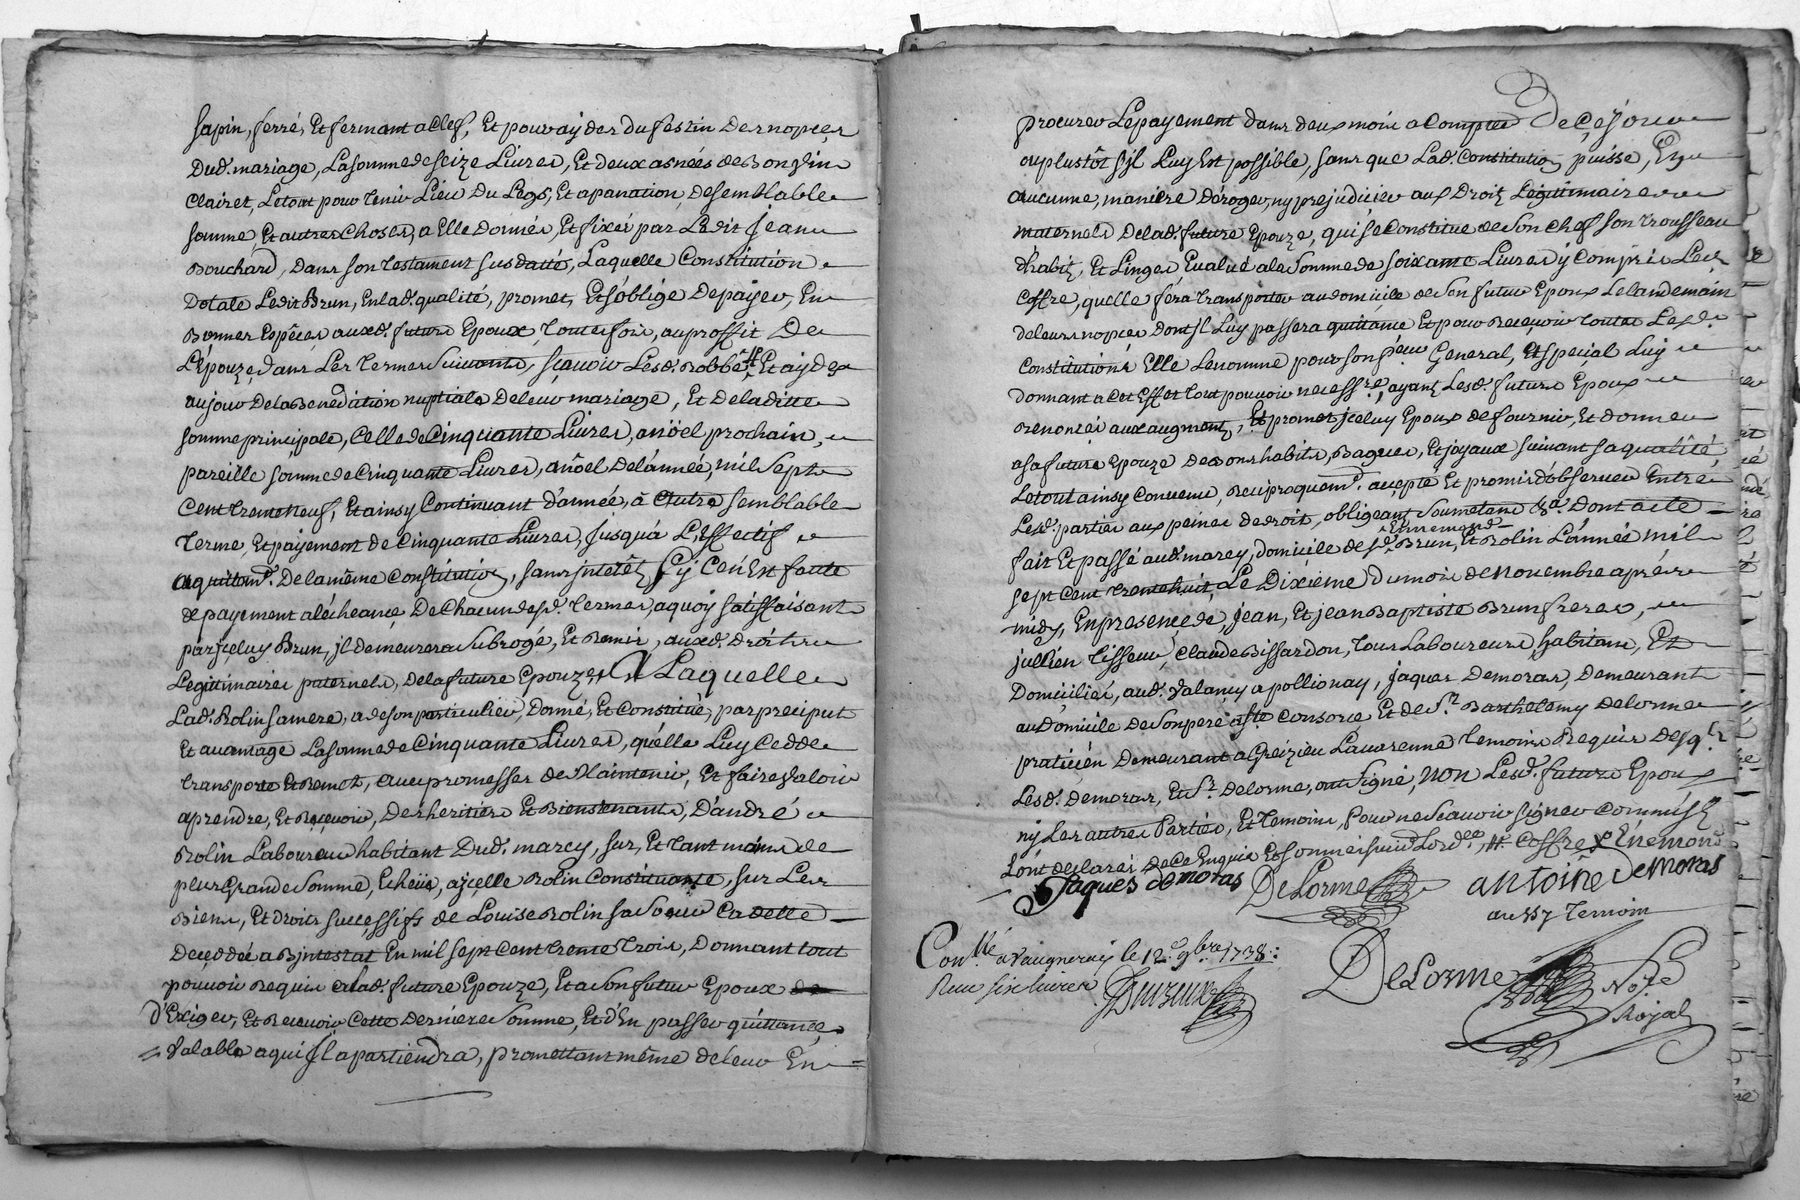 sapin, ferré, Et fermant a Clef, Et pour ayder du festin Des nopces
Dud. mariage, La somme de seize Livres, Et deux asnées de Bon vin
Clairet, Le tout pour tenir Lieu Du Legs, Et apanation, De semblable
somme, Et autres choses, a Elle Donnés, Et fixés par Ledit Jean
Bouchard, Dans son testament susdatté, Laquelle Constitution
Dotale Ledit Brun, En lad. qualité, promet, Et s'oblige De payer, En
Bonnes Espèces auxd. futurs Epoux, toutesfois, au proffit De
L'Epouze, dans Les termes suivants, sçavoir Lesd. Robbe # Et aydes
au jour De la Benediction nuptiale De leur mariage, Et De laditte
somme principale, Celle de Cinquante Livres, a nöel prochain,
pareille somme de Cinquante Livres, a nöel De l'année, mil sept
Cent trente Neuf, Et ainsy Continuant d'année, à Autre semblable
terme, Et payement de Cinquante Livres, Jusqu'à L'Effectif
aquittem.t De la même Constitution, sans interêt sy Ce n'Est faute
de payement a l'écheance De Chacun desd. termes, a quoy satisfaisant
par jceluy Brun, jl demeurera subrogé, Et Remis, auxd. Droits
Legitimaires paternels, De la future Epouze, A Laquelle
Lad. Rolin sa mere, a de son particulier, Donné, Et Constitué, par preciput
Et avantage La somme de Cinquante Livres, qu'elle Luy Cedde
transporte Et Remet, avec promesses de Maintenir, Et faire Valoir
a prendre, Et Recevoir, Des heritiers Et Bienstenants, D'andré
Rolin Laboureur habitant Dud. marcy, sur, Et tant moins de
plus Grande somme, Echeüe, a jcelle Rolin Constituante, sur Les
Biens, Et droits successifs de Louise Rolin sa soeur Cadette
Deceddée ab jntestat En mil sept Cent trente trois, Donnant tout
pouvoir Requis a lad. future Epouze, Et a son futur Epoux
d'Exiger, Et Recevoir Cette Derniere somme, Et d'En passer quittance,
Valable a qui jl apartiendra, promettant même de leur En
procurer Le payement dans deux mois a Compter De Ce Jour
ou plustôt s'jl Luy Est possible, sans que Lad. Constitution puisse, En
aucunne, maniere Déroger, ny prejudicier aux Droits Legitimaires
maternels De lad. future Epouze, qui se Constitue de son Chef son trousseau
d'habits, Et Linges Evalué a la somme de soixante Livres y Compris Led.
Coffre, qu'elle féra transporter au domicile de son futur Epoux Le landemain
de leurs nopces dont jl Luy passera quittance Et pour Recevoir toutes Lesd.
Constitutions Elle Le nomme pour son p.eur General, Et special Luy
donnant a Cet Effet tout pouvoir necess.re, ayant Lesd. futurs Epoux
renoncés aux augments, Et promet jceluy Epoux de fournir, Et donner
a sa future Epouze De bons habits, Bagues, Et joyaux suivant sa qualité
Le tout ainsy Convenu, Reciproquem.t accepté Et promis d'observer Entre
Lesd. parties aux peines de droit, obligeant soumettant &a. Dont acte
Ennemond
fait Et passé aud. marcy, domicile desd. Brun, Et Rolin L'année mil
sept Cent trente huit, Le Dixième Du mois de Novembre après
midy, En presence de, jean, Et jean Baptiste Brun freres,
jullien tisseur, Claude Bissardon, tous Laboureurs habitans, Et
Domiciliés, aud. Valancy apollionay, jaques Demoras, Demeurant
au Domicile de son pere Consorce Et de S.r Barthelemy Delorme
praticien Demeurant a Greizieu Lavarenne temoins Requis Desq.ls
Lesd. Demoras, Et S.r Delorme, ont signé, Non Lesd. futurs Epoux
ny Les autres Parties, Et temoins, pour ne scavoir signer Comm'jls
L'ont declarés de Ce Enquis Et sommés suiv.t L'ord.ce, # Coffre x Enemond
Jaques demoras DeLorme antoine demoras
aussy temoin
Con.llé à Vaugneray le 12.e 9.bre 1738:
Reçu six livres
DeLorme No.re
Royal